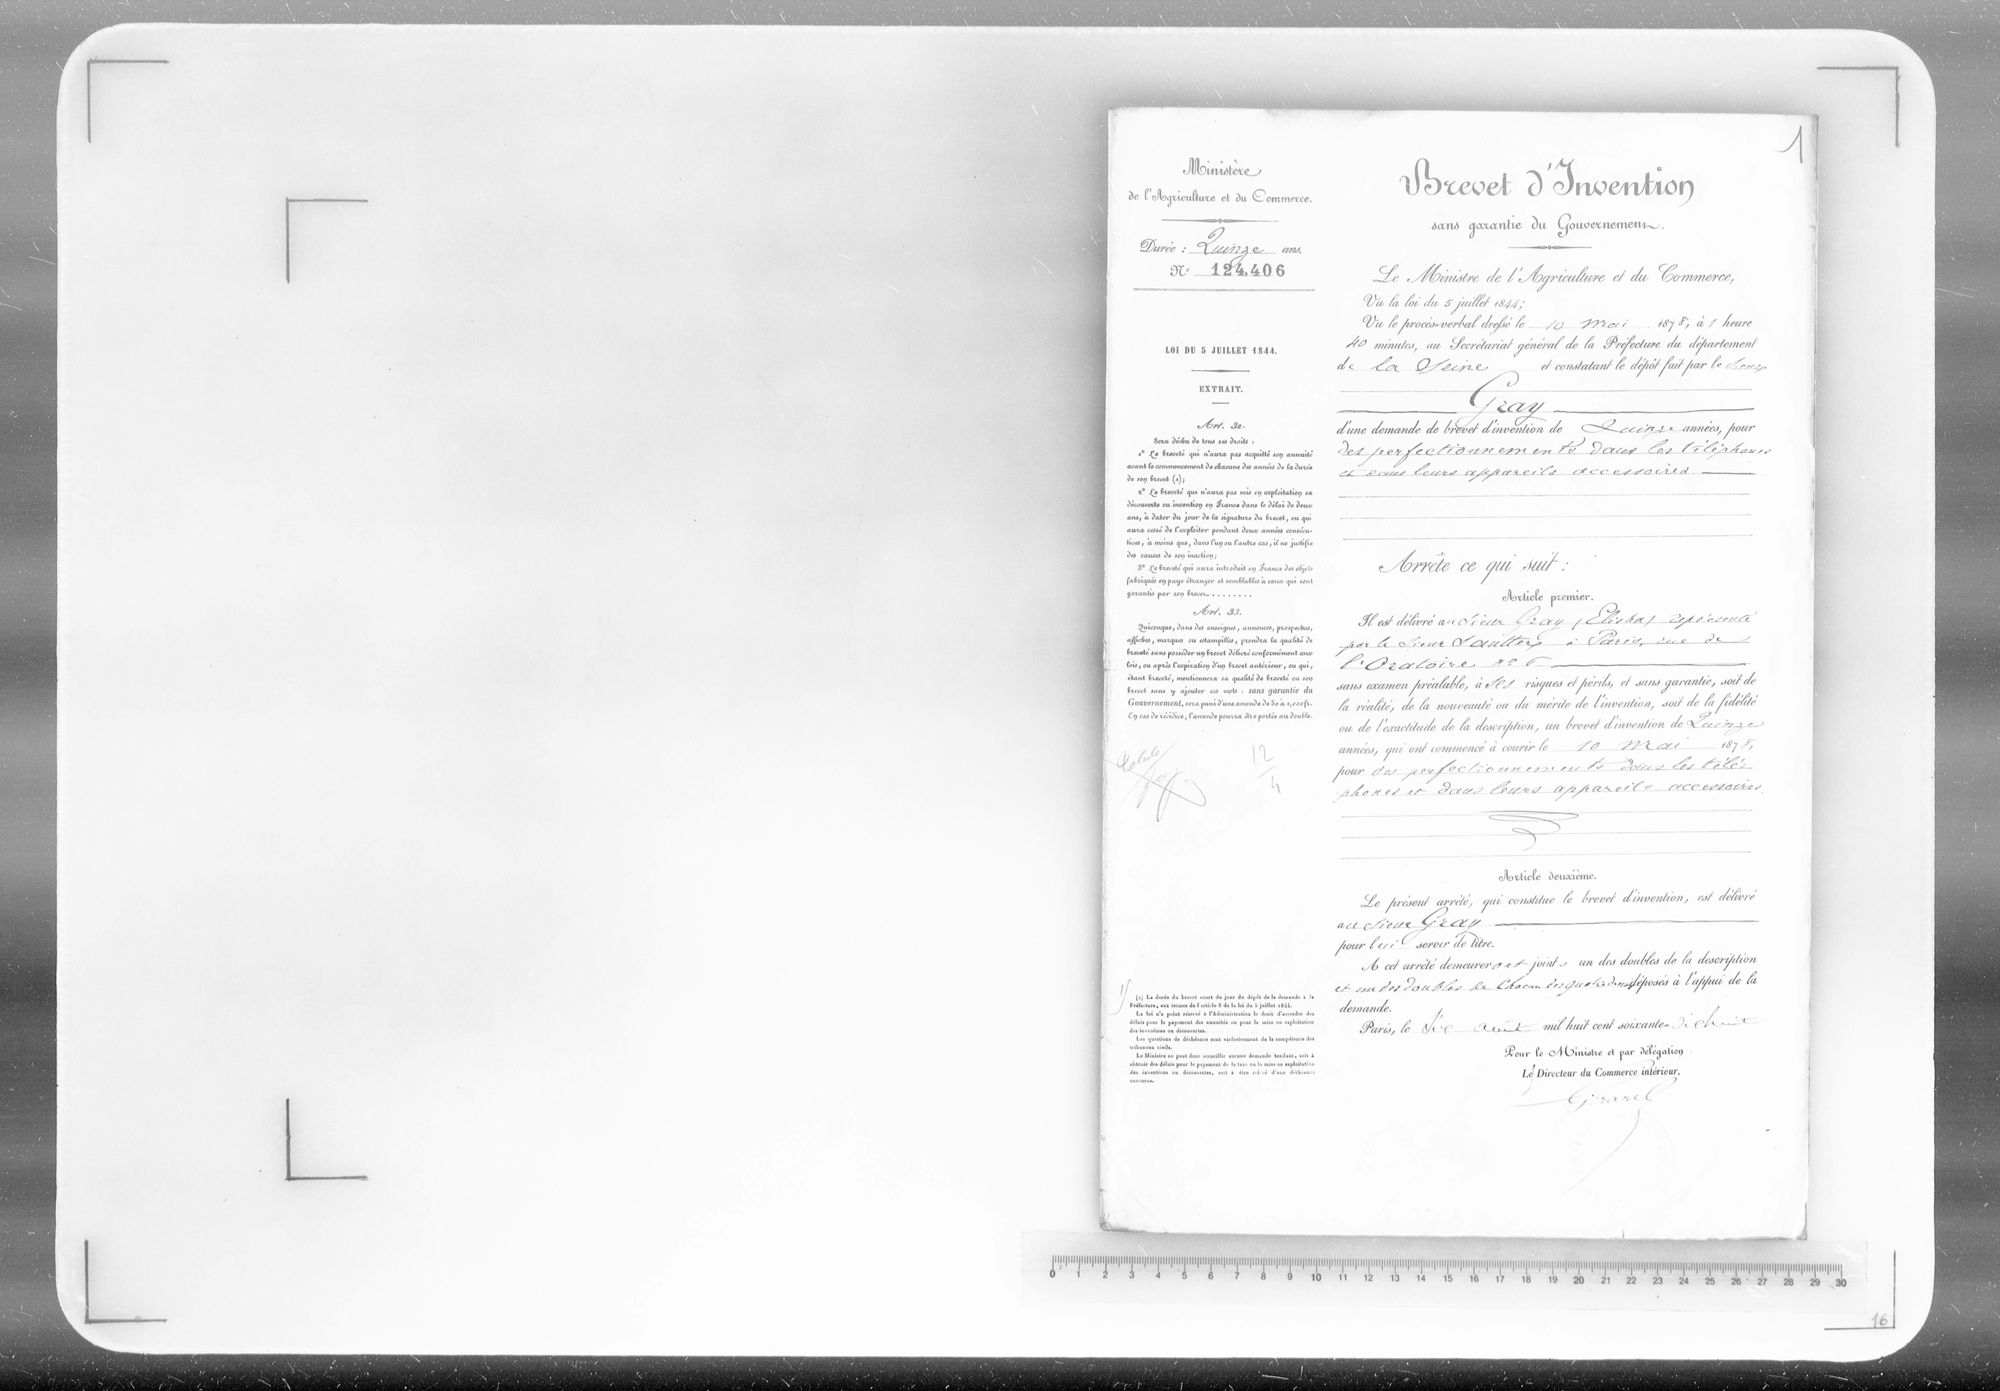 1
Ministère
de l'Agriculture et du Commerce.
Durée : Quinze ans.
N° 124,406
LOI DU 5 JUILLET 1844.
EXTRAIT.
Art. 32.
Sera déchu de tous ses droits :
1° Le breveté qui n'aura pas acquitté son annuité
avant le commencement de chacune des années de la durée
de son brevet (1);
2° Le breveté qui n'aura pas mis en exploitation sa
découverte ou invention en France dans le délai de deux
ans, à dater du jour de la signature du brevet, ou qui
aura cessé de l'exploiter pendant deux années consécu-
tives, à moins que, dans l'un ou l'autre cas, il ne justifie
des causes de son inaction;
3° Le breveté qui aura introduit en France des objets
fabriqués en pays étranger et semblables à ceux qui sont
garantis par son brevet........
Art. 33.
Quiconque, dans des enseignes, annonces, prospectus,
affiches, marques ou estampilles, prendra la qualité de
breveté sans posséder un brevet délivré conformément aux
lois, ou après l'expiration d'un brevet antérieur, ou qui,
étant breveté, mentionnera sa qualité de breveté ou son
brevet sans y ajouter ces mots : sans garantie du
Gouvernement, sera puni d'une amende de 50 à 1,000 fr.
En cas de récidive, l'amende pourra être portée au double.
12
4
(1) La durée du brevet court du jour du dépôt de la demande à la
Préfecture, aux termes de l'article 8 de la loi du 5 juillet 1844.
La loi n'a point réservé à l'Administration le droit d'accorder des
délais pour le payement des annuités ou pour la mise en exploitation
des inventions ou découvertes.
Les questions de déchéance sont exclusivement de la compétence des
tribunaux civils.
Le Ministre ne peut donc accueillir aucune demande tendant, soit à
obtenir des délais pour le payement de la taxe ou la mise en exploitation
des inventions ou découvertes, soit à être relevé d'une déchéance
encourue.
Brevet d'Invention
sans garantie du Gouvernement.
Le Ministre de l'Agriculture et du Commerce,
Vu la loi du 5 juillet 1844;
Vu le procès-verbal dressé le 10 mai 1878, à 1 heure
40 minutes, au Secrétariat général de la Préfecture du département
de la Seine et constatant le dépôt fait par le Sieur
Gray
d'une demande de brevet d'invention de Quinze années, pour
des perfectionnements dans les téléphones
et dans leurs appareils accessoires
Arrête ce qui suit :
Article premier.
Il est délivré au Sieur Gray (Elisha) représenté
par le Sieur Sautter à Paris, rue de
l'Oratoire n° 6
sans examen préalable, à ses risques et périls, et sans garantie, soit de
la réalité, de la nouveauté ou du mérite de l'invention, soit de la fidélité
ou de l'exactitude de la description, un brevet d'invention de Quinze
années, qui ont commencé à courir le 10 mai 1878,
pour des perfectionnements dans les télé-
phones et dans leurs appareils accessoires.
Article deuxième.
Le présent arrêté, qui constitue le brevet d'invention, est délivré
au Sieur Gray
pour lui servir de titre.
A cet arrêté demeureront joints un des doubles de la description
et un des doubles de chacun des quatre dessins déposés à l'appui de la
demande.
Paris, le six août mil huit cent soixante-dix huit
Pour le Ministre et par délégation
Le Directeur du Commerce intérieur.
Girard
0 1 2 3 4 5 6 7 8 9 10 11 12 13 14 15 16 17 18 19 20 21 22 23 24 25 26 27 28 29 30
16